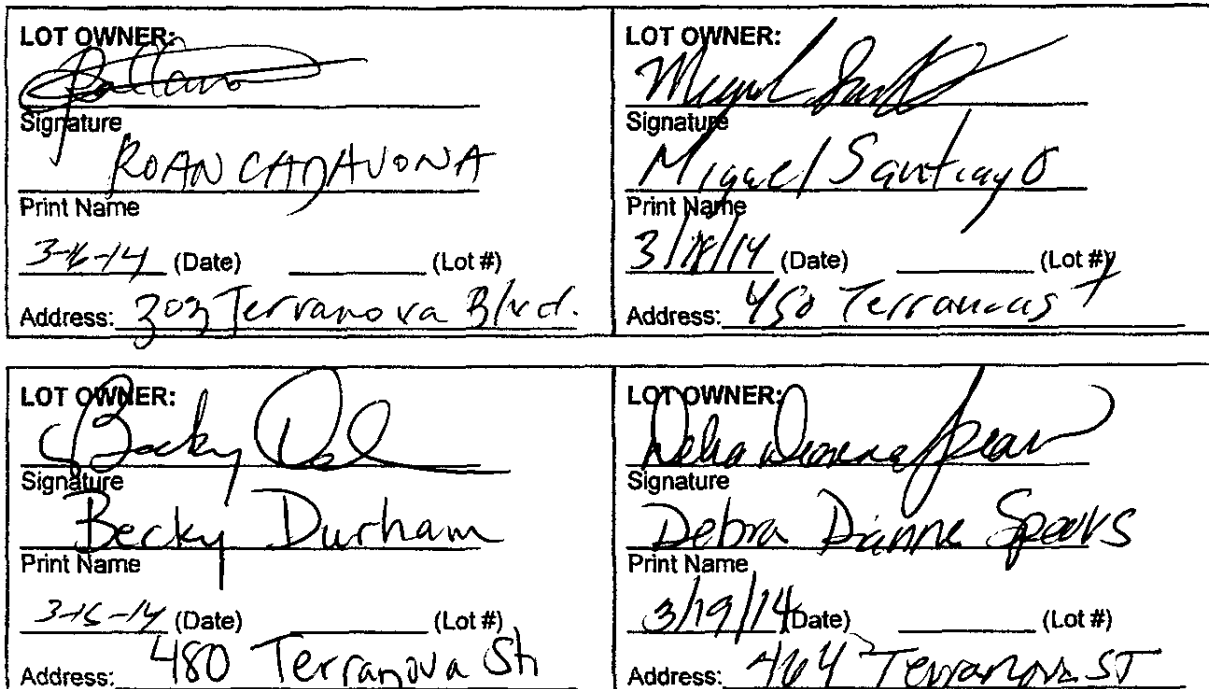 LOT OWNER:
Signature
ROAN CADAVONA
Print Name
3-16-14 (Date) (Lot #)
Address: 303 Terranova Blvd.
LOT OWNER:
Signature
Miguel Santiago
Print Name
3/18/14 (Date) (Lot #)
Address: 450 Terranova St
LOT OWNER:
Becky
Signature
Becky Durham
Print Name
3-15-14 (Date) (Lot #)
Address: 480 Terranova St
LOT OWNER:
Signature
Debra Dianne Spears
Print Name
3/19/14 (Date) (Lot #)
Address: 464 Terranova ST